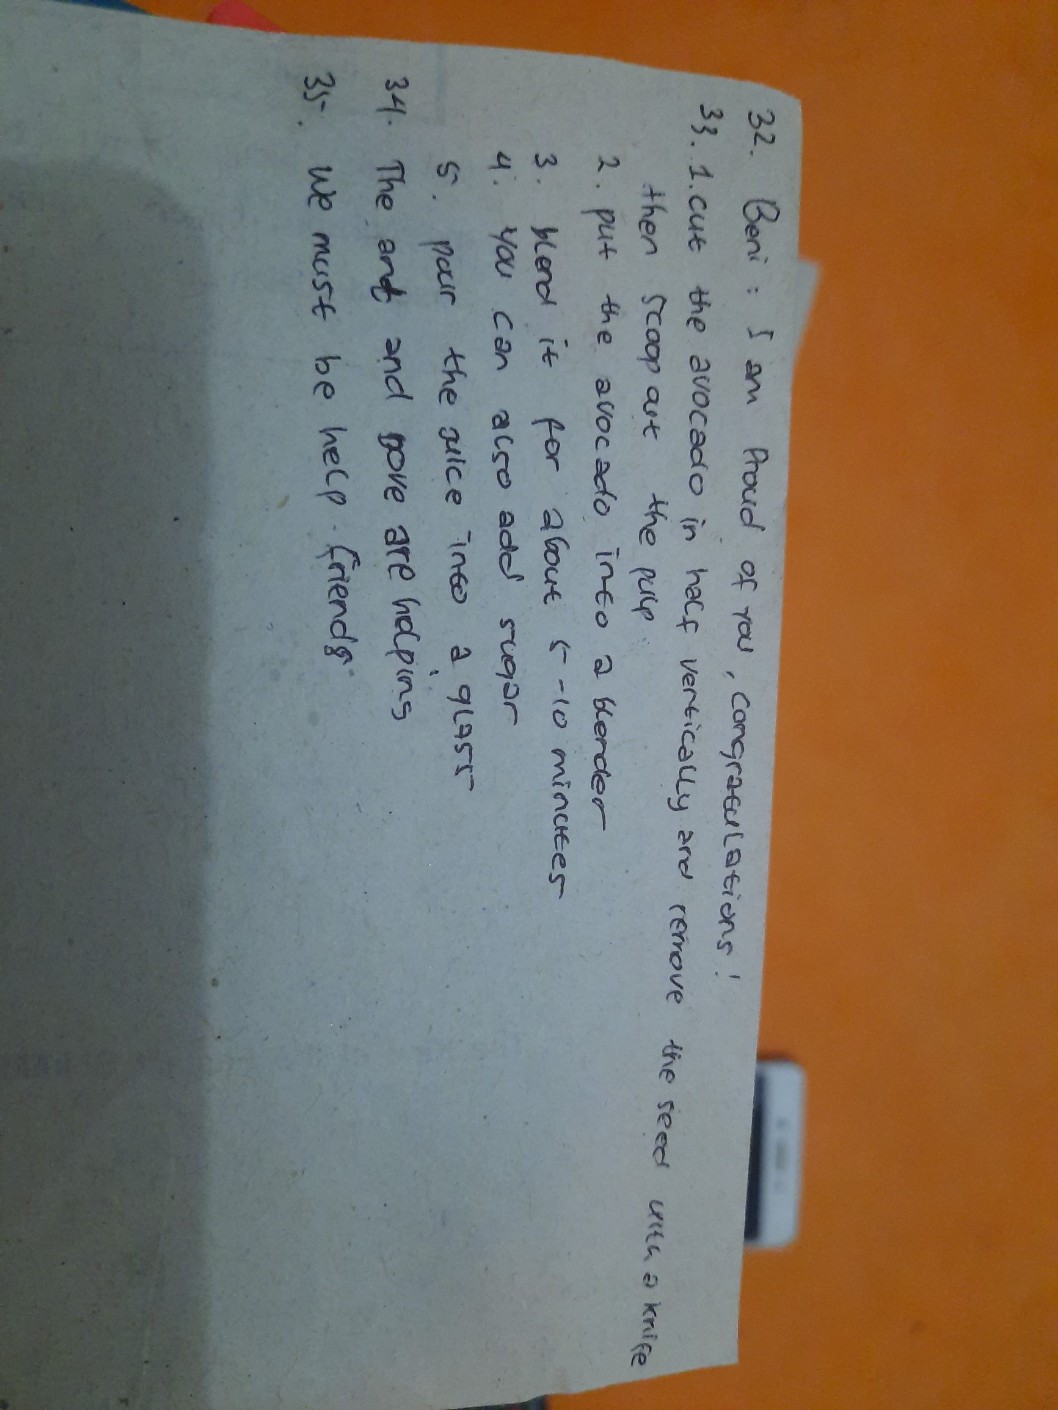 32. Beni : I am Proud of you, congratulations!
33. 1. cut the avocado in half vertically and remove the seed with a knife
then scoop out the pulp.
2. put the avocado into a blender
3. blend it for about 5-10 minutes
4. you can also add sugar
5. pour the juice into a glass
34. The ant and dove are helping
35. We must be help friends.